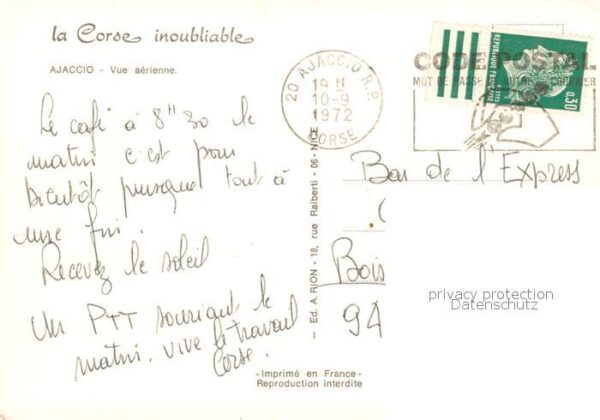 la Corse inoubliable
AJACCIO - Vue aérienne.
Le café à 8H30 le
matin c'est pour
bientôt puisque tout à
une fin.
Recevez le soleil
Un PTT souriant le
matin. Vive le travail
Corse.
20 AJACCIO R.P.
19 H
10-9
1972
CORSE
CODE POSTAL
MOT DE PASSE DE VOTRE COURRIER
REPUBLIQUE FRANÇAISE
POSTES
0,30
- Ed. A. RION - 18, rue Raiberti - 06 - NICE
Bar de l'Express
Bois
94
privacy protection
Datenschutz
- Imprimé en France -
Reproduction interdite